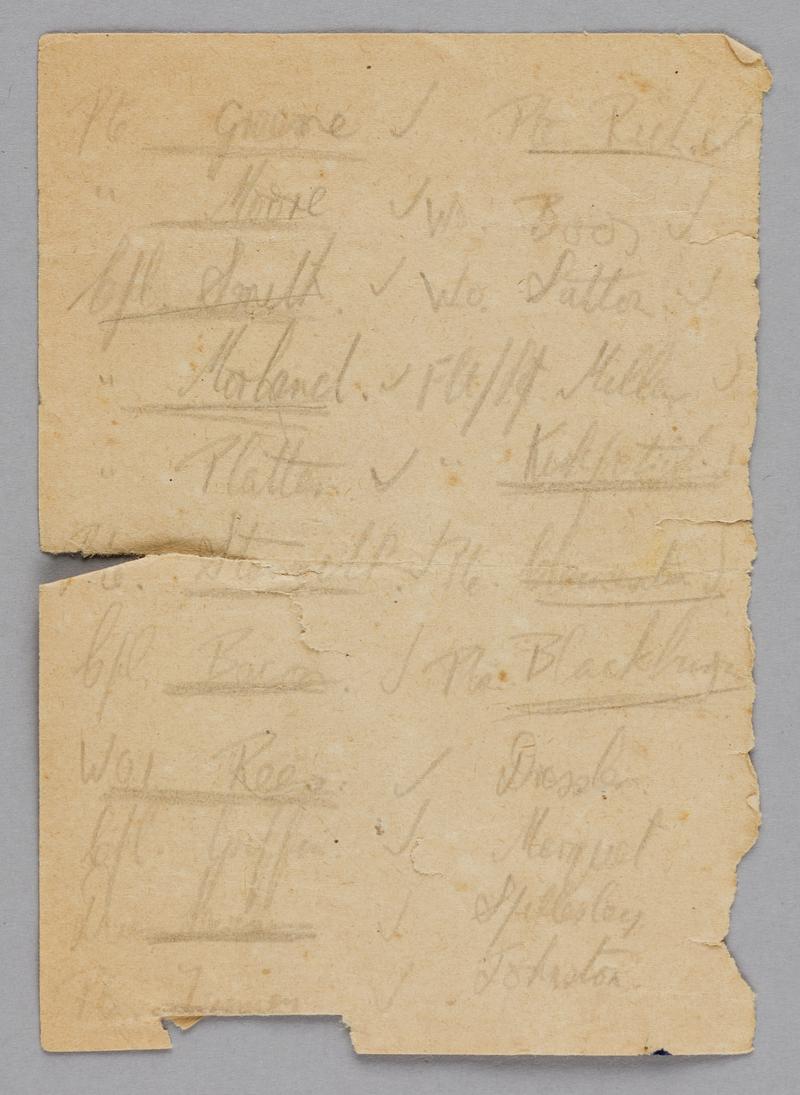 Pte Greene ✓ Pte Rich. ✓
" Moore ✓ Wo. Boon ✓
Cpl. Smith. ✓ Wo. Sutton ✓
" Morland. ✓ Flt/Lt Millar ✓
" Platten ✓ " Kirkpatrick. ✓
Pte. ✓ Pte. ✓
Cpl. Bacon. ✓ Pte Blackburn
Wo1 Rees. ✓ Dressler
Cpl. Griffin ✓ Marquet
✓ Spillesley
Pte. ✓ Johnston.